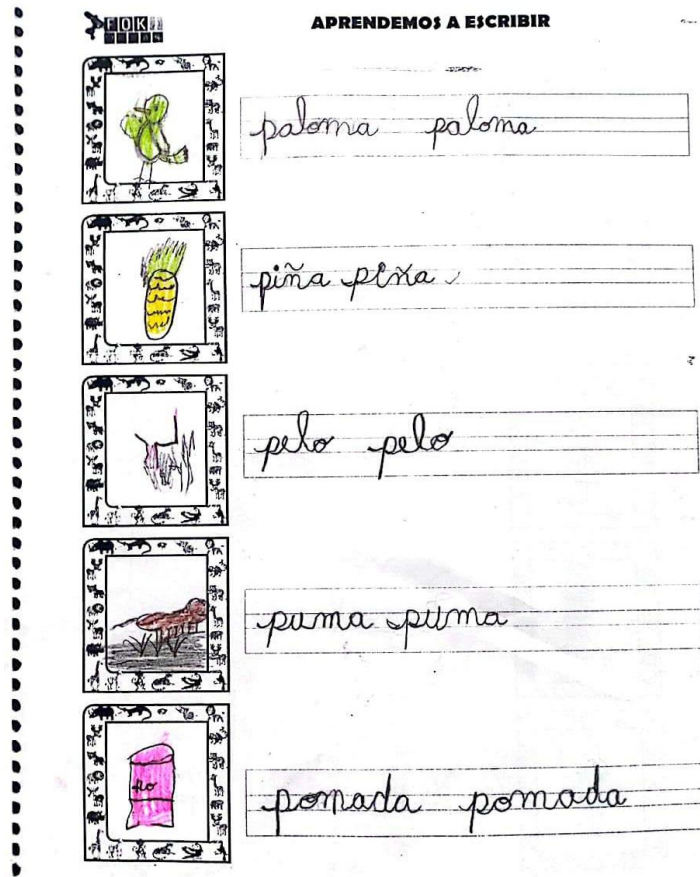 FOK
APRENDEMOS A ESCRIBIR
paloma paloma
piña piña
pelo pelo
puma puma
po
pomada pomada